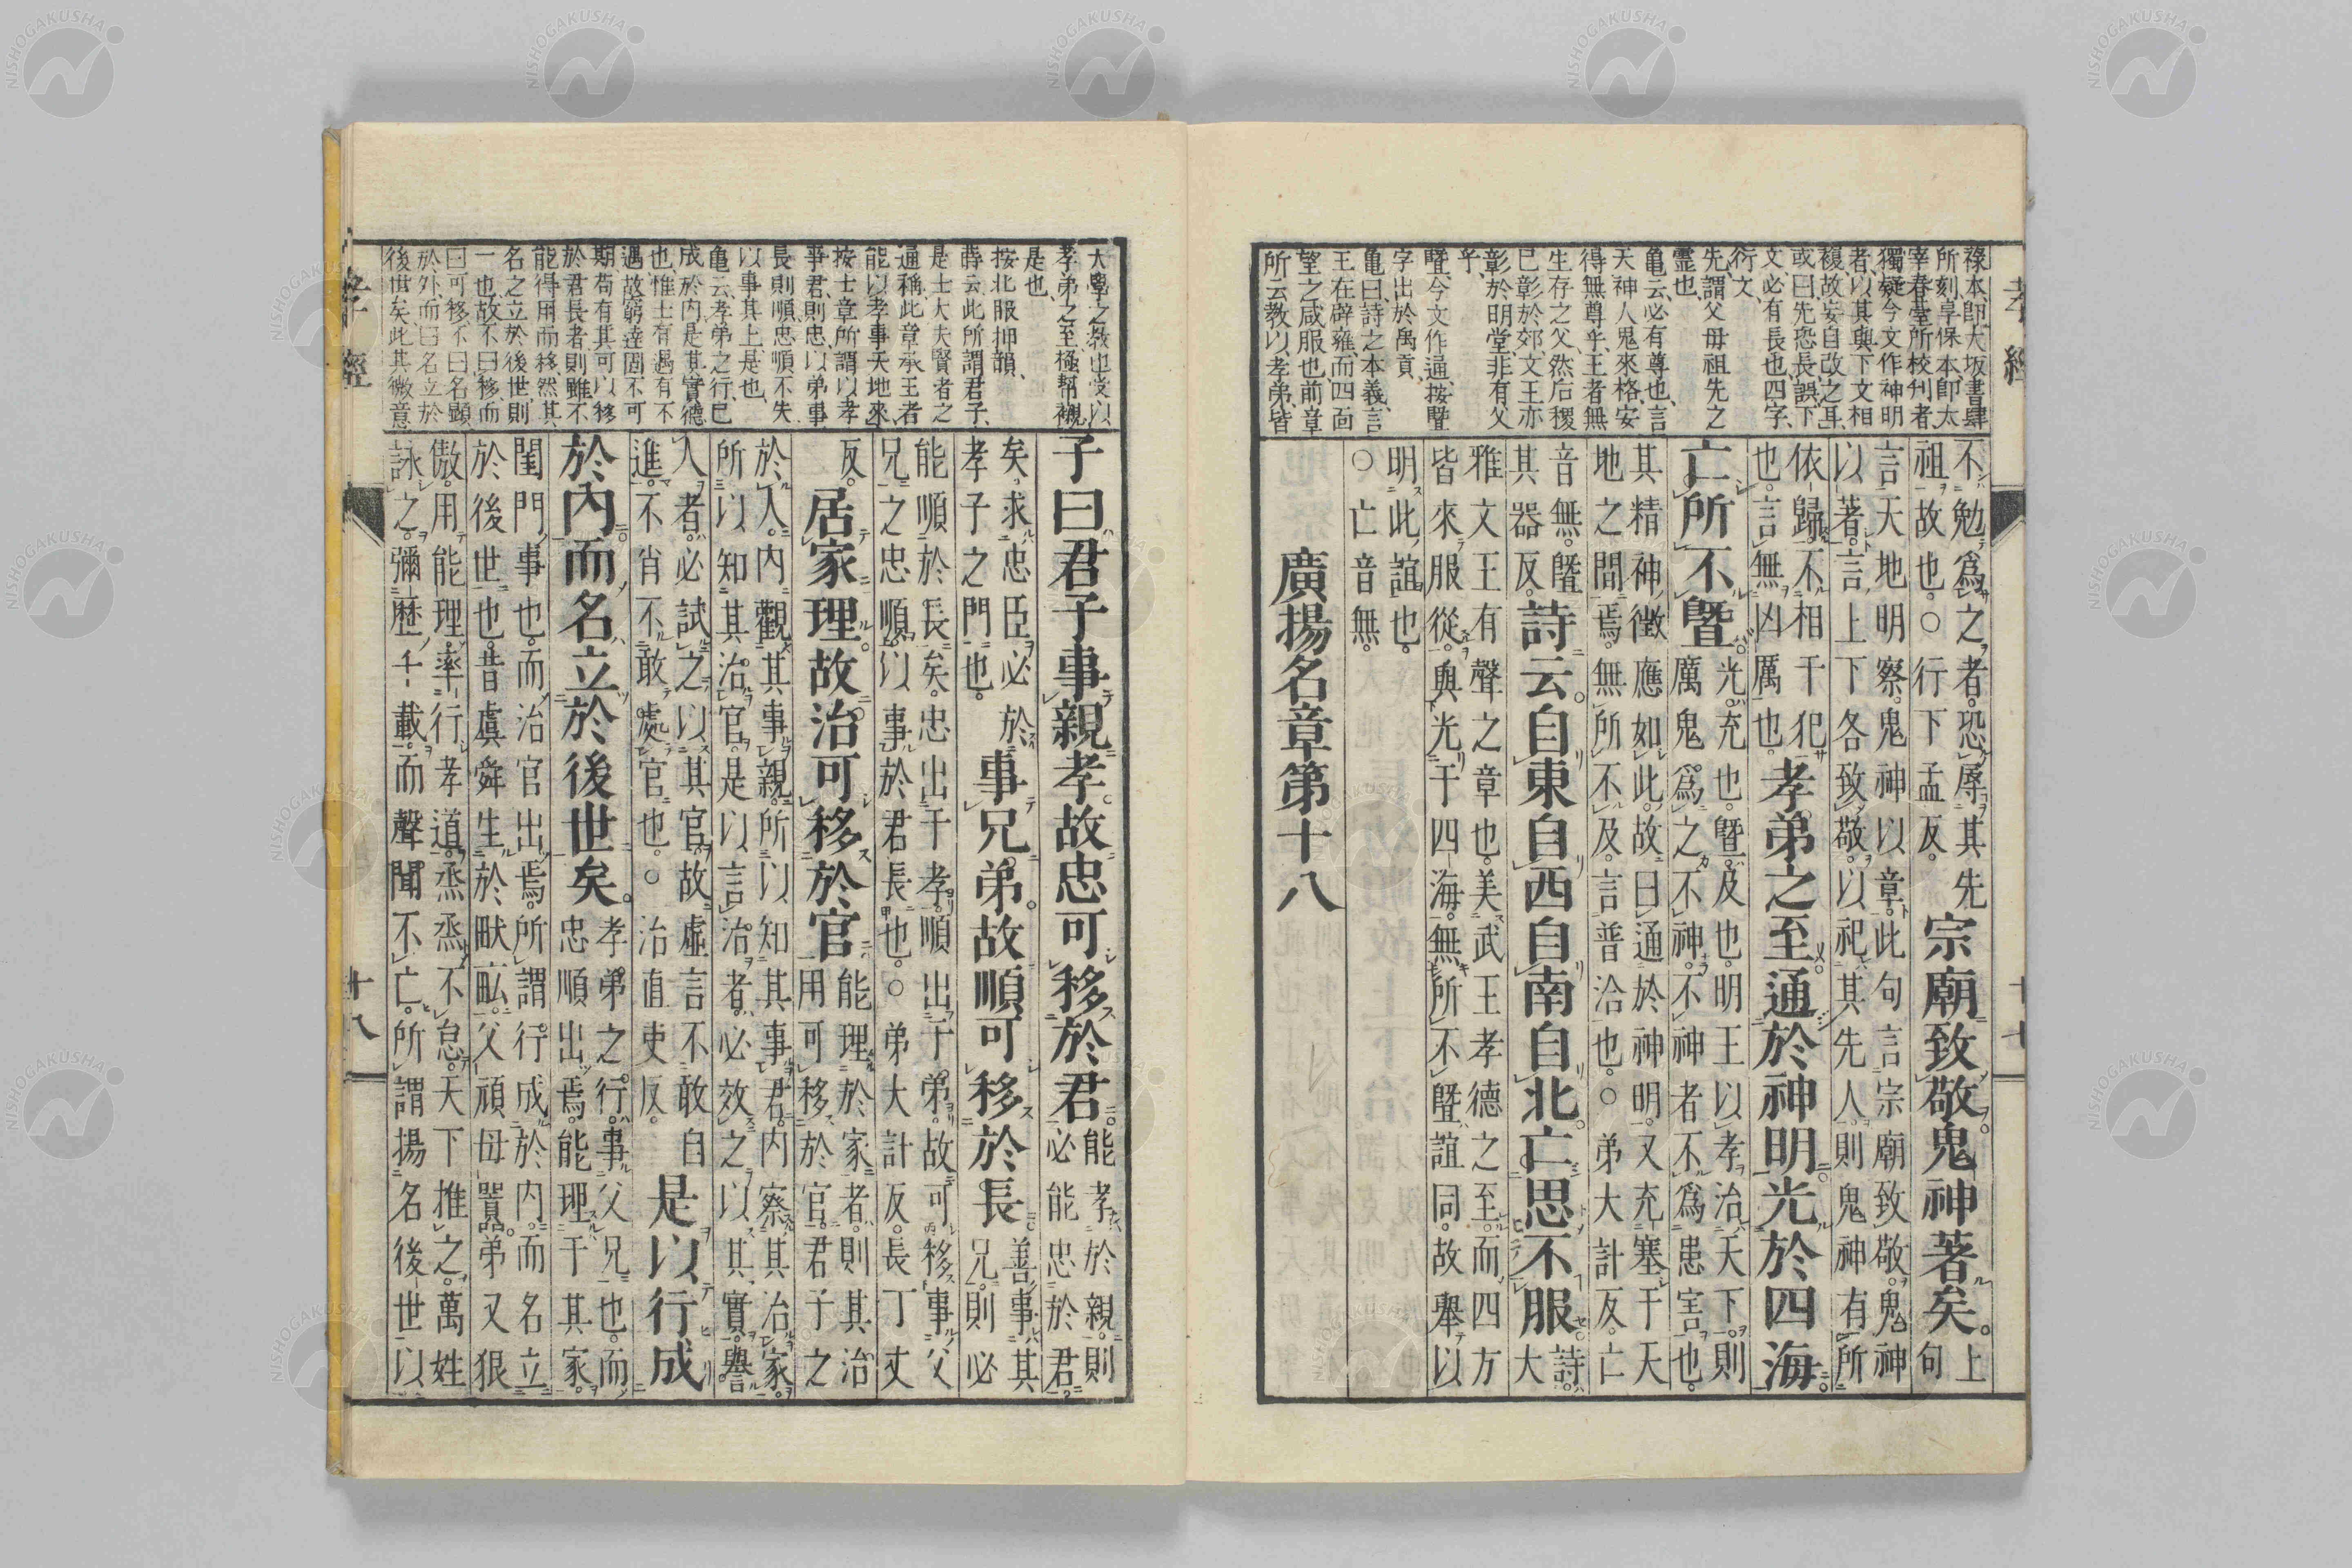 孝經
十七
祿本卽大坂書肆
所刻享保本卽太
宰春臺所校刋者
獨疑今文作神明
者以其與下文相
複故妄自改之耳
或曰先恐長誤下
文必有長也四字
衍文
先謂父母祖先之
靈也
亀云必有尊也言
天神人鬼來格安
得無尊乎王者無
生存之父然后稷
已彰於郊文王亦
彰於明堂非有父
乎
曁今文作通按曁
字出於禹貢
亀曰詩之本義言
王在辟雍而四面
望之咸服也前章
所云敎以孝弟皆
不勉爲之者恐辱其先
祖故也○行下孟反
宗廟致敬鬼神著矣
上句
言天地明察鬼神以章此句言宗廟致敬鬼神
以著言上下各致敬以祀其先人則鬼神有所
依歸不相干犯
也言無凶厲也
孝弟之至通於神明光於四海
亡所不曁
光充也曁及也明王以孝治天下則
厲鬼爲之不神不神者不爲患害也
其精神徵應如此故曰通於神明又充塞于天
地之間焉無所不及言普洽也○弟大計反亡
音無曁
其器反
詩云自東自西自南自北亡思不服
詩大
雅文王有聲之章也美武王孝德之至而四方
皆來服從與光于四海無所不曁誼同故舉以
明此誼也
○亡音無
廣揚名章第十八
大學之敎也爰以
孝弟之至極幇襯
是也
按北服押韻
蒔云此所謂君子
是士大夫賢者之
通稱此章承王者
能以孝事天地來
按士章所謂以孝
事君則忠以弟事
長則順忠順不失
以事其上是也
亀云孝弟之行已
成於内是其實德
也惟士有遇有不
遇故窮達固不可
期苟有其可以移
於君長者則雖不
能得用而移然其
名之立於後世則
一也故不曰移而
曰可移不曰名顯
於外而曰名立於
後世矣此其微意
子曰君子事親孝故忠可移於君
能孝於親則
必能忠於君
矣求忠臣必於
孝子之門也
事兄弟故順可移於長
善事其
兄則必
能順於長矣忠出于孝順出于弟故可移事父
兄之忠順以事於君長也○弟大計反長丁丈
反
居家理故治可移於官
能理於家者則其治
用可移於官君子之
於人內觀其事親所以知其事君內察其治家
所以知其治官是以言治者必效之以其實譽
人者必試之以其官故虛言不敢自
進不肖不敢處官也○治直吏反
是以行成
於內而名立於後世矣
孝弟之行事父兄也而
忠順出焉能理于其家
閨門事也而治官出焉所謂行成於内而名立
於後世也昔虞舜生於畎畝父頑母嚚弟又狠
傲用能理率行孝道烝烝不怠天下推之萬姓
詠之彌歷千載而聲聞不亡所謂揚名後世以
孝經
十八